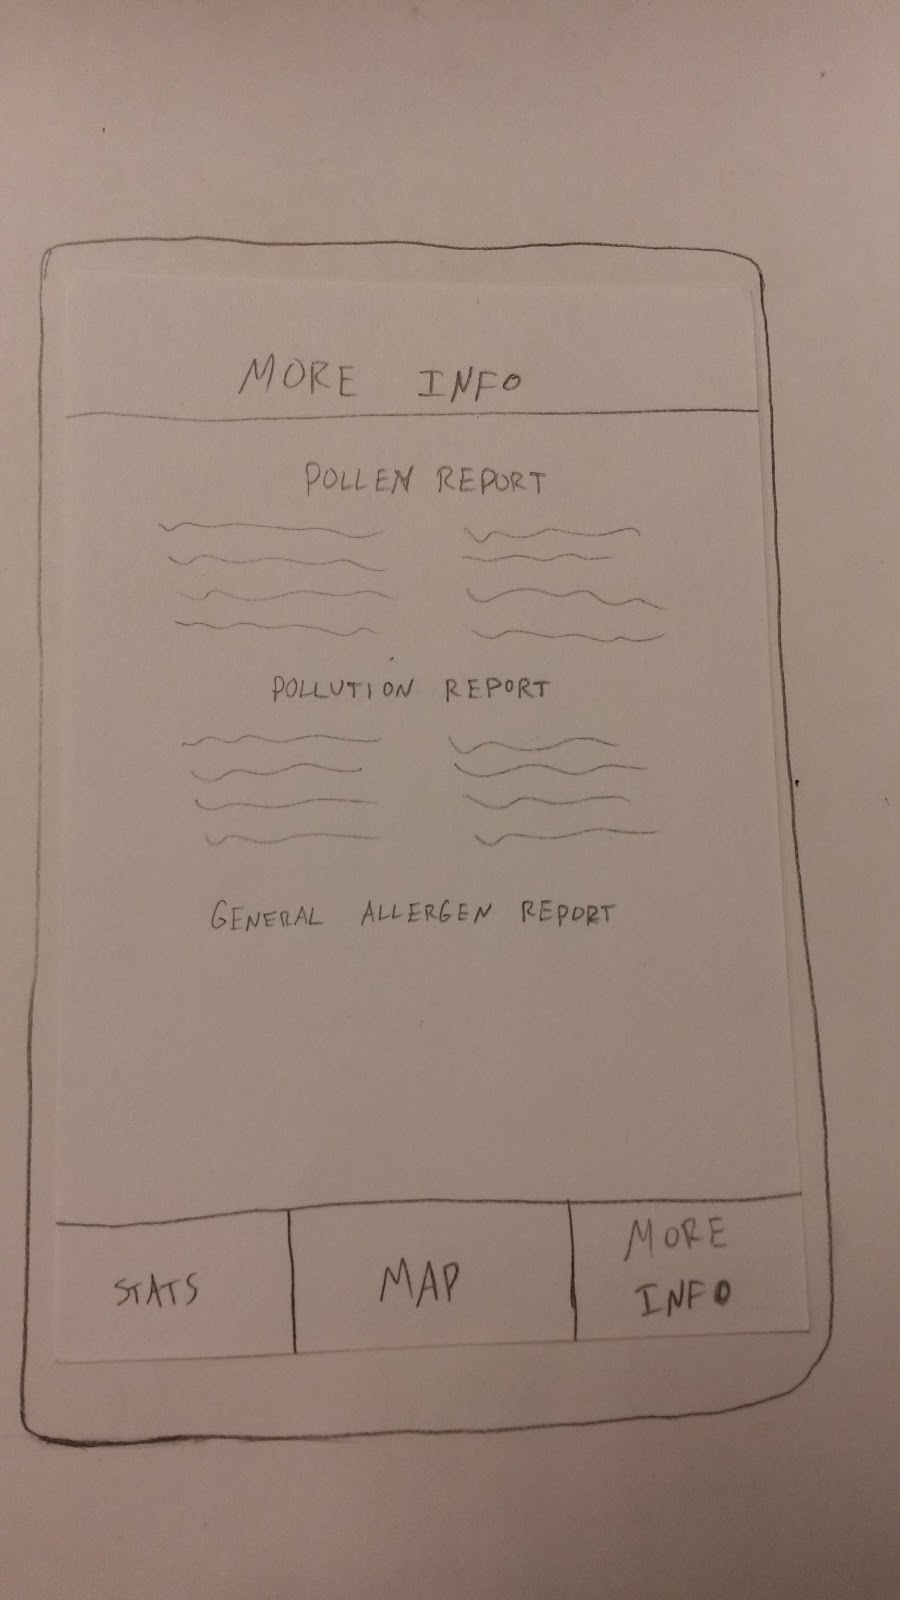 MORE INFO
POLLEN REPORT
POLLUTION REPORT
GENERAL ALLERGEN REPORT
STATS
MAP
MORE
INFO